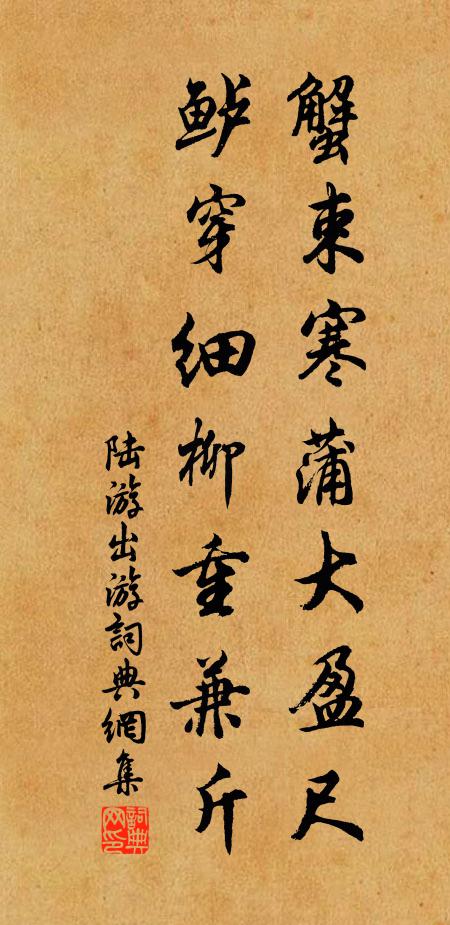 蟹束寒蒲大盈尺
鲈穿细柳重兼斤
陆游出游詞典網集
詞典網印